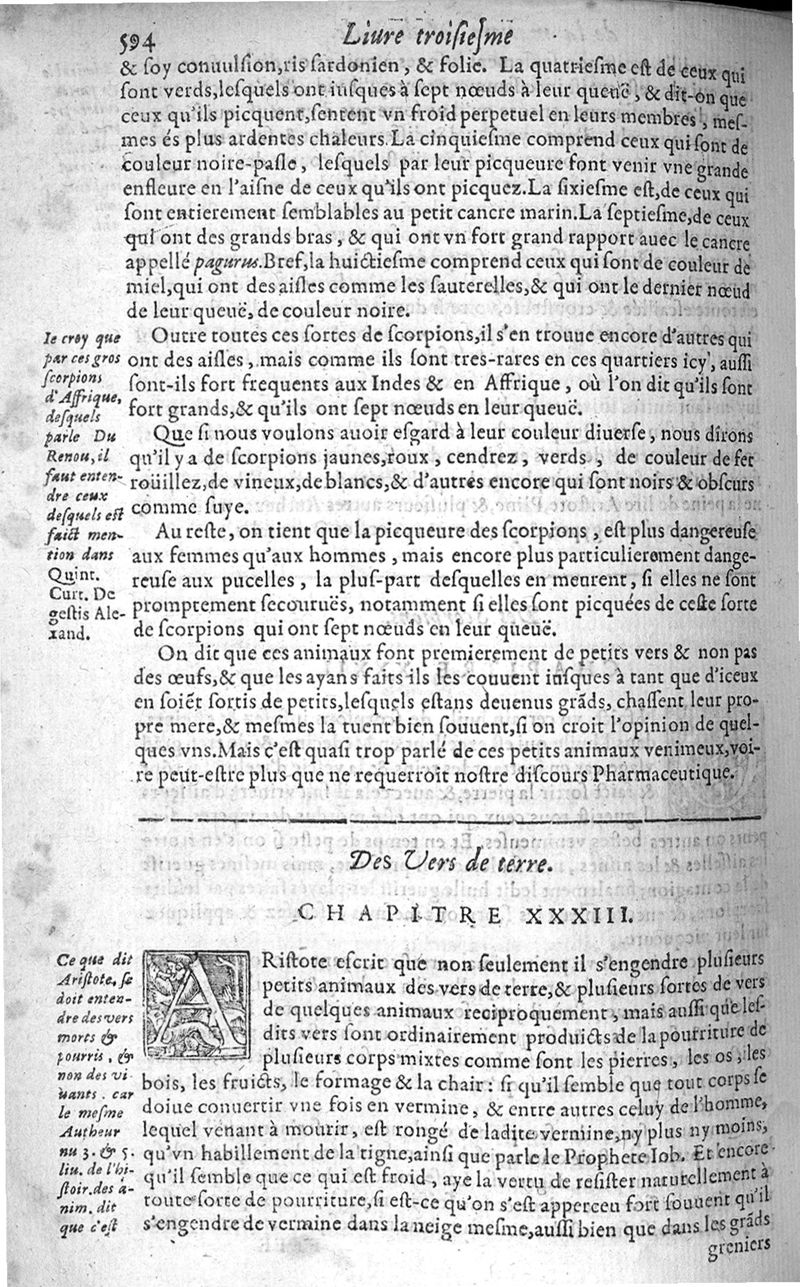 594
Liure troisiesme
& soy conuulsion, ris sardonien, & folie. La quatriesme est de ceux qui
sont verds, lesquels ont iusques à sept nœuds à leur queuë, & dit-on que
ceux qu'ils picquent, sentent vn froid perpetuel en leurs membres, mes-
mes és plus ardentes chaleurs. La cinquiesme comprend ceux qui sont de
couleur noire-pasle, lesquels par leur picqueure font venir vne grande
enfleure en l'aisne de ceux qu'ils ont picquez. La sixiesme est, de ceux qui
sont entierement semblables au petit cancre marin. La septiesme, de ceux
qui ont des grands bras, & qui ont vn fort grand rapport auec le cancre
appellé pagurus. Bref, la huictiesme comprend ceux qui sont de couleur de
miel, qui ont des aisles comme les sauterelles, & qui ont le dernier nœud
de leur queuë, de couleur noire.
Outre toutes ces sortes de scorpions, il s'en trouue encore d'autres qui
ont des aisles, mais comme ils sont tres-rares en ces quartiers icy, aussi
sont-ils fort frequents aux Indes & en Affrique, où l'on dit qu'ils sont
fort grands, & qu'ils ont sept nœuds en leur queuë.
Que si nous voulons auoir esgard à leur couleur diuerse, nous dirons
qu'il y a de scorpions jaunes, roux, cendrez, verds, de couleur de fer
roüillez, de vineux, de blancs, & d'autres encore qui sont noirs & obscurs
comme suye.
Au reste, on tient que la picqueure des scorpions, est plus dangereuse
aux femmes qu'aux hommes, mais encore plus particulierement dange-
reuse aux pucelles, la plus-part desquelles en meurent, si elles ne sont
promptement secouruës, notamment si elles sont picquées de ceste sorte
de scorpions qui ont sept nœuds en leur queuë.
On dit que ces animaux font premierement de petits vers & non pas
des œufs, & que les ayans faits ils les couuent iusques à tant que d'iceux
en soiẽt sortis de petits, lesquels estans deuenus grãds, chassent leur pro-
pre mere, & mesmes la tuent bien souuent, si on croit l'opinion de quel-
ques vns. Mais c'est quasi trop parlé de ces petits animaux venimeux, voi-
re peut-estre plus que ne requerroit nostre discours Pharmaceutique.
Ie croy que
par ces gros
scorpions
d'Affrique,
desquels
parle Du
Renou, il
faut enten-
dre ceux
desquels est
faict men-
tion dans
Quint.
Curt. De
gestis Ale-
xand.
Des Vers de terre.
CHAPITRE XXXIII.
ARistote escrit que non seulement il s'engendre plusieurs
petits animaux des vers de terre, & plusieurs sortes de vers
de quelques animaux reciproquement, mais aussi que les-
dits vers sont ordinairement produicts de la pourriture de
plusieurs corps mixtes comme sont les pierres, les os, les
bois, les fruicts, le formage & la chair : si qu'il semble que tout corps se
doiue conuertir vne fois en vermine, & entre autres celuy de l'homme,
lequel venant à mourir, est rongé de ladite vermine, ny plus ny moins,
qu'vn habillement de la tigne, ainsi que parle le Prophete Iob. Et encore
qu'il semble que ce qui est froid, aye la vertu de resister naturellement à
toute sorte de pourriture, si est-ce qu'on s'est apperceu fort souuent qu'il
s'engendre de vermine dans la neige mesme, aussi bien que dans les grãds
greniers
Ce que dit
Aristote, se
doit enten-
dre des vers
morts &
pourris, &
non des vi-
uants. car
le mesme
Autheur
au 3. & 5.
liu. de l'hi-
stoir. des a-
nim. dit
que c'est